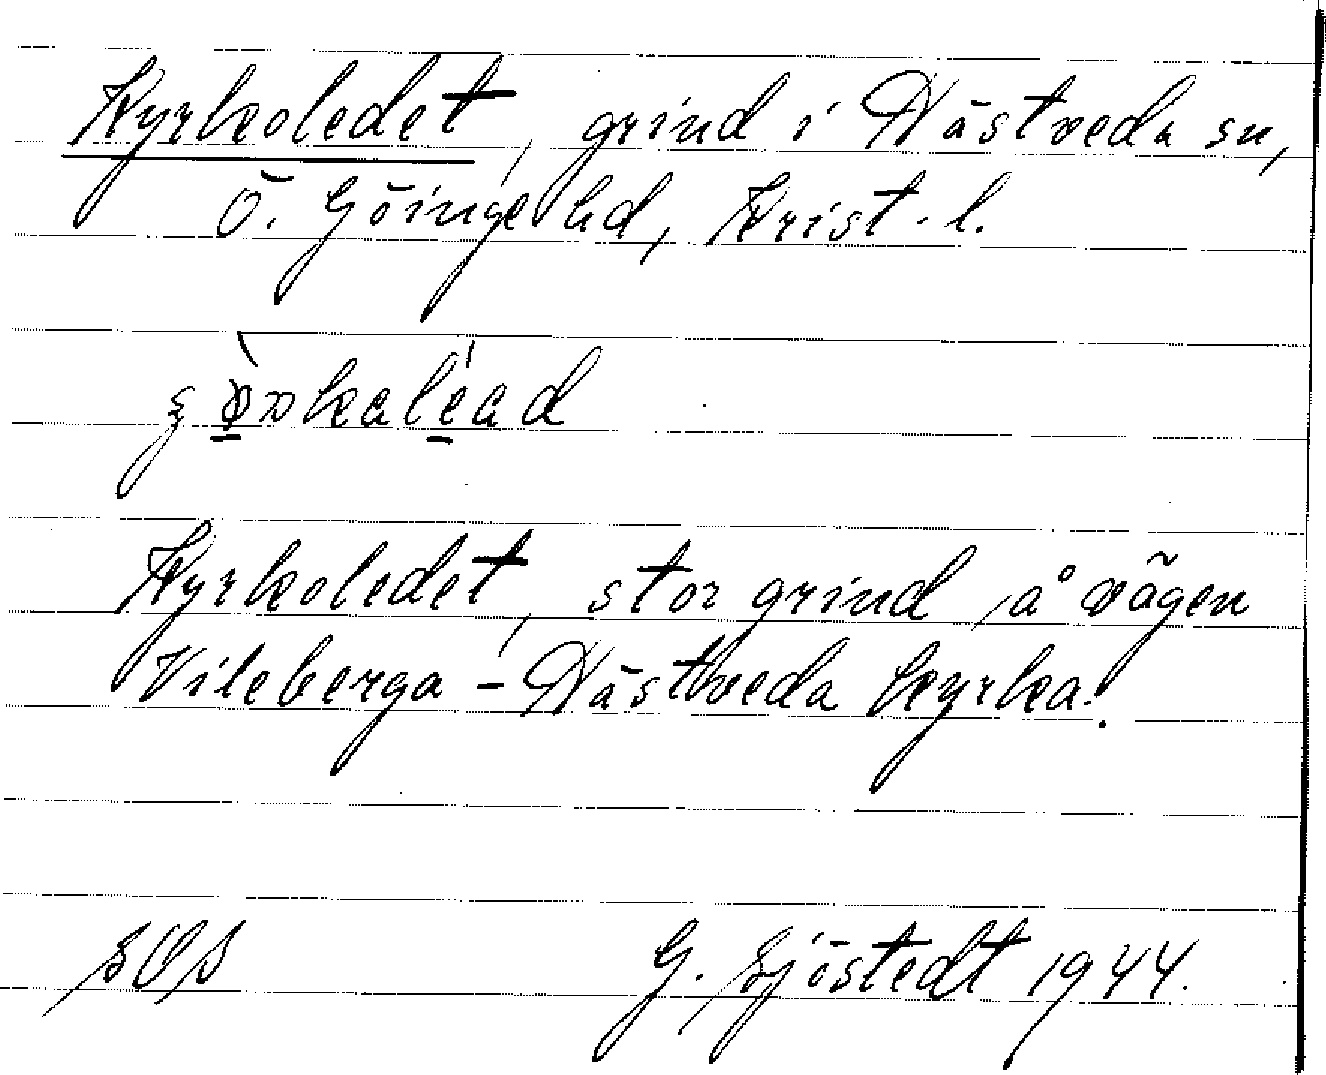 Kyrkoledet, grind i Nästveda sn,
Ö. Göinge hd, Krist. l.
Kyrkoledet, stor grind, å vägen
Vileberga - Nästveda kyrka.
G. Sjöstedt 1944.